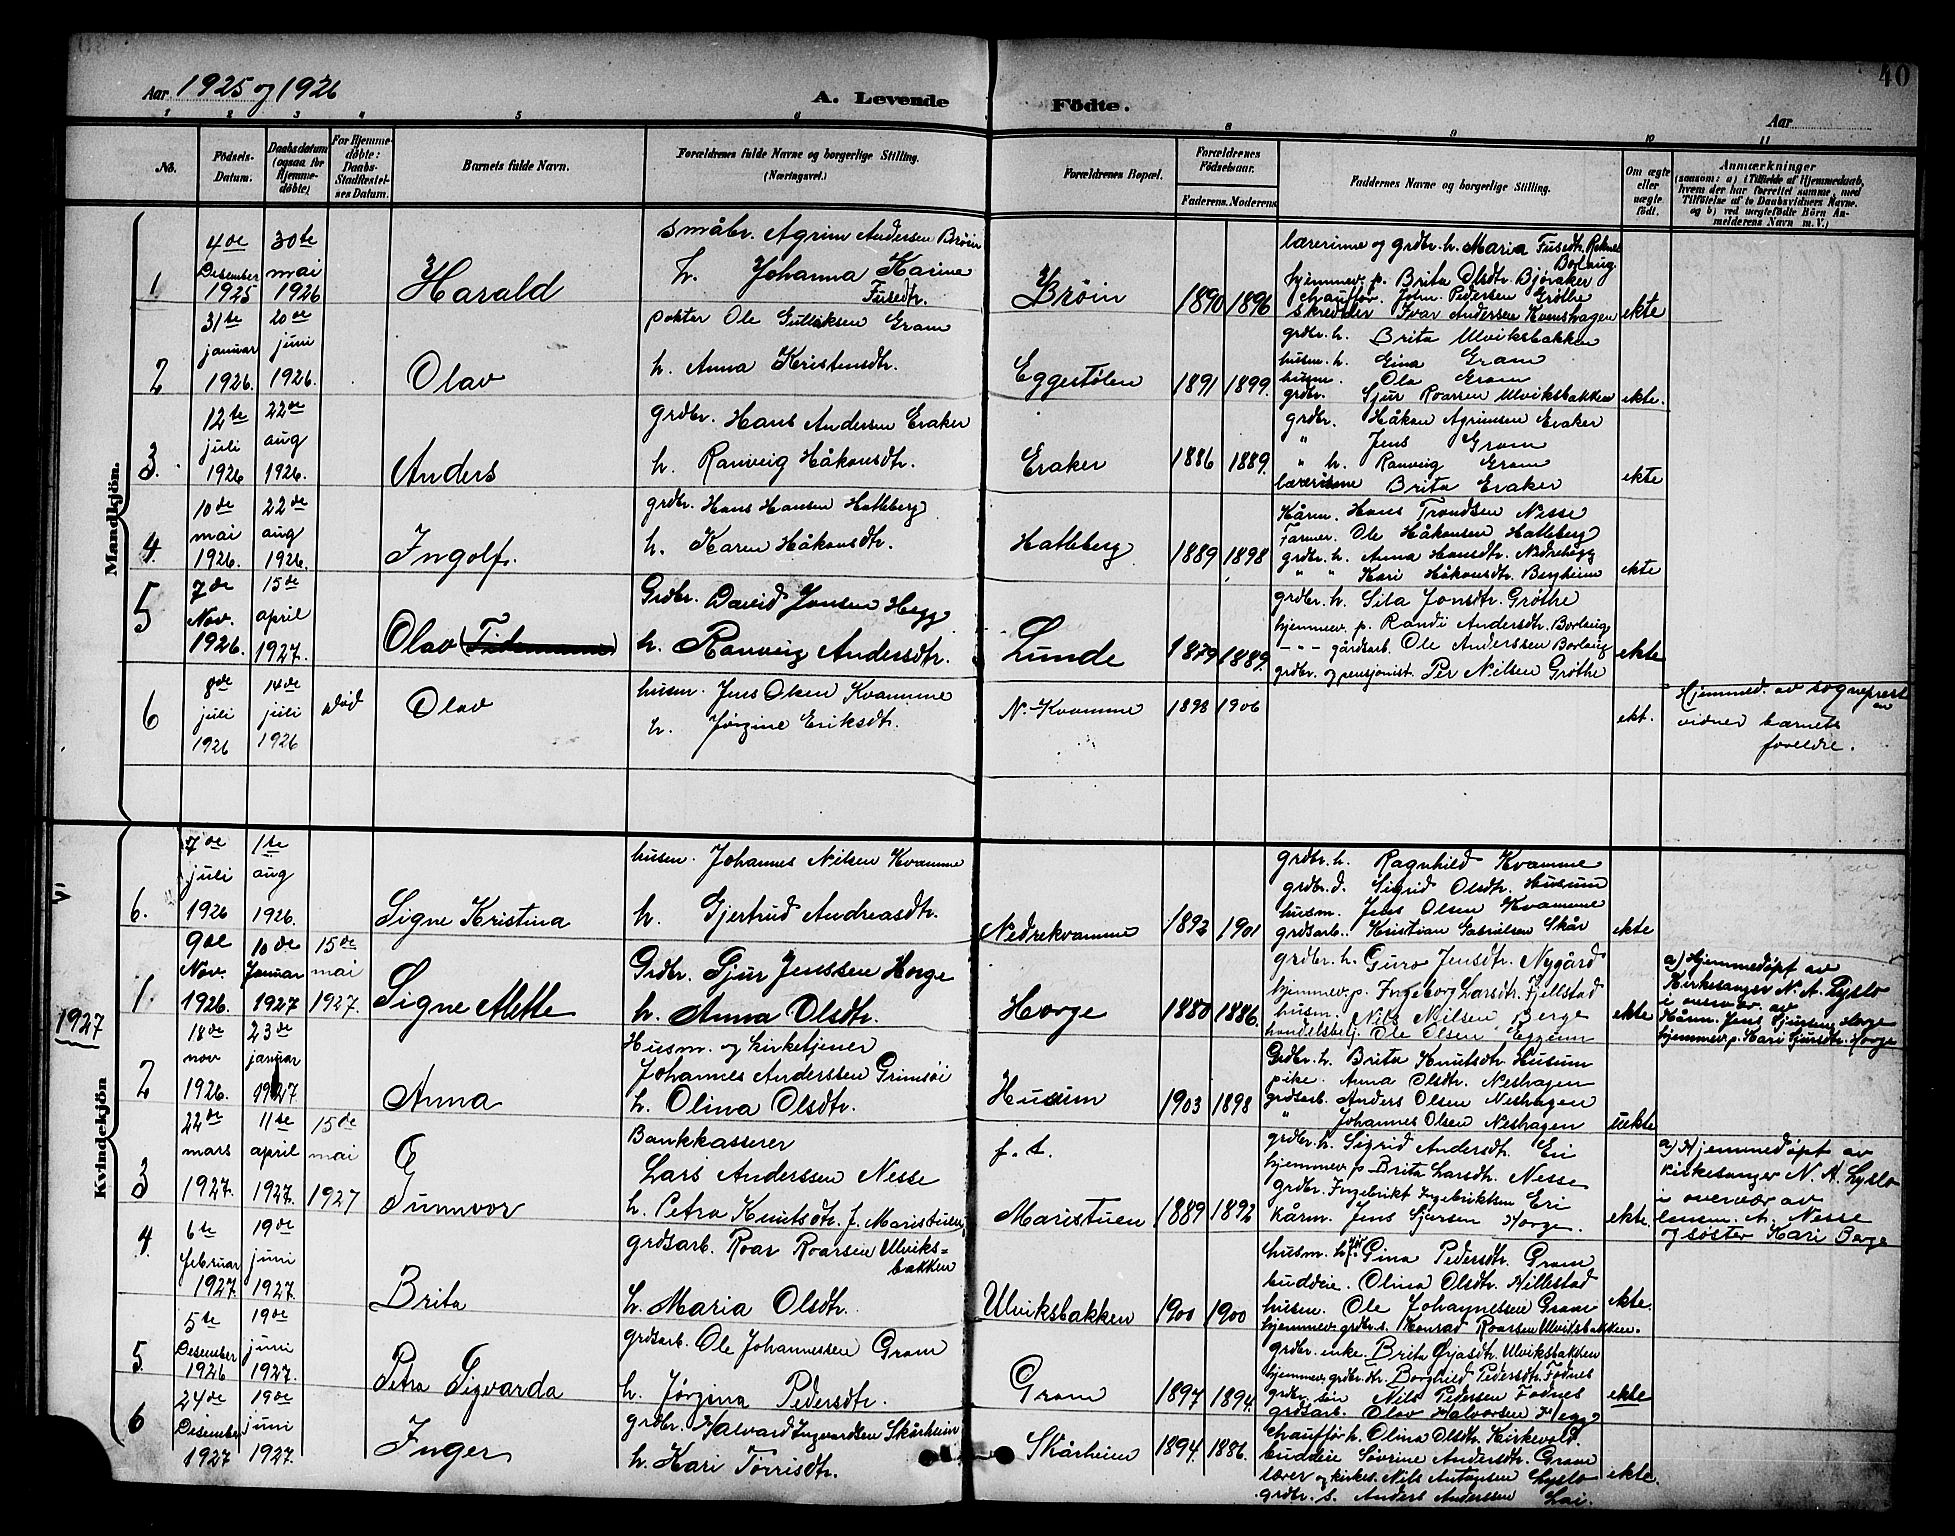 Aar 1925 og 1926
A. Levende Födte.
40
Aar
1 2 3 4 5 6 8 9 10 11
No.
Födsels-Datum.
Daabsdatum (ogsaa for Hjemmedöbte)
For Hjemmedöbte: Daabs-Stadfæstelses Datum.
Barnets fulde Navn.
Forældrenes fulde Navne og borgerlige Stilling. (Næringsvei.)
Forældrenes Bopæl.
Forældrenes Födselsaar.
Faderens. Moderens.
Faddernes Navne og borgerlige Stilling.
Om ægte eller uægte födt.
Anmærkninger
(saasom: a) i Tilfælde af Hjemmedaab, hvem der har forrettet samme, med Tilföielse af to Daabsvidners Navne. og b) ved uægtefödte Börn Anmelderens Navn m. V.)
Mandkjön.
1 4de Desember 1925 30te mai 1926 Harald
småbr. Agrim Andersen Brøin
h. Johanna Karine Fusedtr.
Brøin 1890 1896
lærerinne og grdbr. h. Maria Fusedtr. Borlaug
hjemmev. p. Brita Olsdtr. Bjøraker
chauffør. John Pedersen Grøthe
skredder Ivar Andersen Kvenshagen
ekte
2 31te januar 1926. 20de juni 1926. Olav
Ole Gulliksen Gram
h. Anna Kristensdtr.
Eggestølen 1891 1899.
grdbr. h. Brita Ulviksbakken
husm. h. Gina Gram
husm. Ola Gram
grdbr. Sjur Roarsen Ulviksbakken
ekte.
3. 12te juli 1926 22de aug 1926. Anders
grdbr. Hans Andersen Eraker
h. Ranveig Håkonsdtr.
Eraker 1886 1889.
grdbr. Håkon Agrimsen Eraker
" Jens Gram
" h. Ranveig Gram
lærerinne Brita Eraker
ekte
4 10de mai 1926 22de aug 1926. Ingolf.
grdbr. Hans Hansen Hatleberg
h. Karen Håkonsdtr.
Hatleberg 1889 1898
Kårm. Hans Trondsen Nesse
Farmer. Ole Håkonsen Hatleberg
grdbr. h. Anna Hansdtr. Nedrehegg
" " Kari Håkonsdtr. Bergheim
ekte
5 7de Nov. 1926. 15de april 1927. Olav
Grdbr. David Jonsen Hegg
h. Ranveig Andersdtr.
Lunde 1879 1889.
grdbr. h. Sila Jonsdtr. Grøthe
hjemmev. p. Randi Andersdtr. Borlaug
- " - gårdsarb. Ole Anderssen Borlaug
grdbr. og pensjonist. Per Nilsen Grøthe
ekte
6 8de juli 1926 14de juli 1926 død Olav
husm. Jens Olsen Kvamme
h. Jørgine Eriksdtr.
N.-Kvamme 1898 1906
ekt.
Hjemmed. av sogneprest
vidner barnets
foreldre.
1927
Kvindekjön
6. 7de juli 1926 1te aug 1926. Signe Kristina
husm. Johannes Nilsen Kvamme
h. Gjertrud Andreasdtr.
Nedrekvamme 1892 1901
grdbr. h. Ragnhild Kvamme
grdbr. d. Sigrid Olsdtr. Husum
husm. Jens Olsen Kvamme
grdsarb. Kristian Gabrielsen Skår
ekte
1. 9de Nov. 1926. 10de Januar 1927 15de mai 1927. Signe Alette
Grdbr. Sjur Jenssen Horge
h. Anna Olsdtr.
Horge 1880 1886.
grdbr. h. Guro Jensdtr. Nygård
hjemmev. p. Ingeborg Larsdtr. Fjellstad
husm. Nils Nilsen Berge
handelsbetj. Ole Olsen Eggum
ekte
a) Hjemmedøpt av
Kirkesanger N. A. Lyslo
i overvær av
Kårm. Jens Sjursen Horge
hjemmev. p. Kari Sjursdtr. Horge
2 18de nov 1926. 23de januar 1927. Anna
Husm. og kirketjener
Johannes Anderssen Grimsøi
h. Olina Olsdtr.
Husum 1903 1898
Grdbr. h. Brita Knutsdtr. Husum
pike. Anna Olsdtr. Neshagen
grdsarb. Anders Olsen Neshagen
" Johannes Olsen Neshagen
uekte
3 22de mars 1927. 11te april 1927. 15de mai 1927 Gunnvor
Bankkasserer
Lars Anderssen Nesse
h. Petra Knutsdtr. f. Maristuen
f. t.
Maristuen 1889 1892
grdbr. h. Sigrid Andersdtr. Eri
hjemmev. p. Brita Larsdtr. Nesse
grdbr. Ingebrikt Ingebriktsen Eri
Kårm. Jens Sjursen Horge.
ekte.
a) Hjemmedøpt av
kirkesanger N. A. Lyslo
i overvær av
lensm. A. Nesse
og søster Kari Berge
4 6te februar 1927 19de juni 1927. Brita
grdsarb. Roar Roarsen Ulviks=
bakken
h. Maria Olsdtr.
Ulviksbakken 1900 1900
husm. h. Gina Pedersdtr. Gram
buddeie. Olina Olsdtr. Hillestad
husm. Ole Johannesen Gram
hjemmev. grdbr. s. Konrad Roarsen Ulviksbakken.
ekte.
5. 5te Desember 1926 19de juni 1927. Petra Sigvarda
grdsarb. Ole Johannessen Gram
h. Jørgina Pedersdtr.
Gram 1897 1894.
grdbr. enke. Brita Ulviksbakken
hjemmev. grdbr. dtr. Borghild Pedersdtr. Fødnes
grdbr. søn Nils Pedersen Fødnes
grdsarb. Olav Halvorsen Hegg
ekte
6 24de Desember 1927 19de juni 1927. Inger
grdbr. Halvard Ingvardsen Skårheim
h. Kari Torrisdtr.
Skårheim 1894. 1886.
chauffør h. Olina Olsdtr. Kirkevold.
buddeie Søvrine Andersdtr. Gram
lærer og kirkes. Nils Antonsen Lyslo
grdbr. s. Anders Anderssen Loi.
ekte.